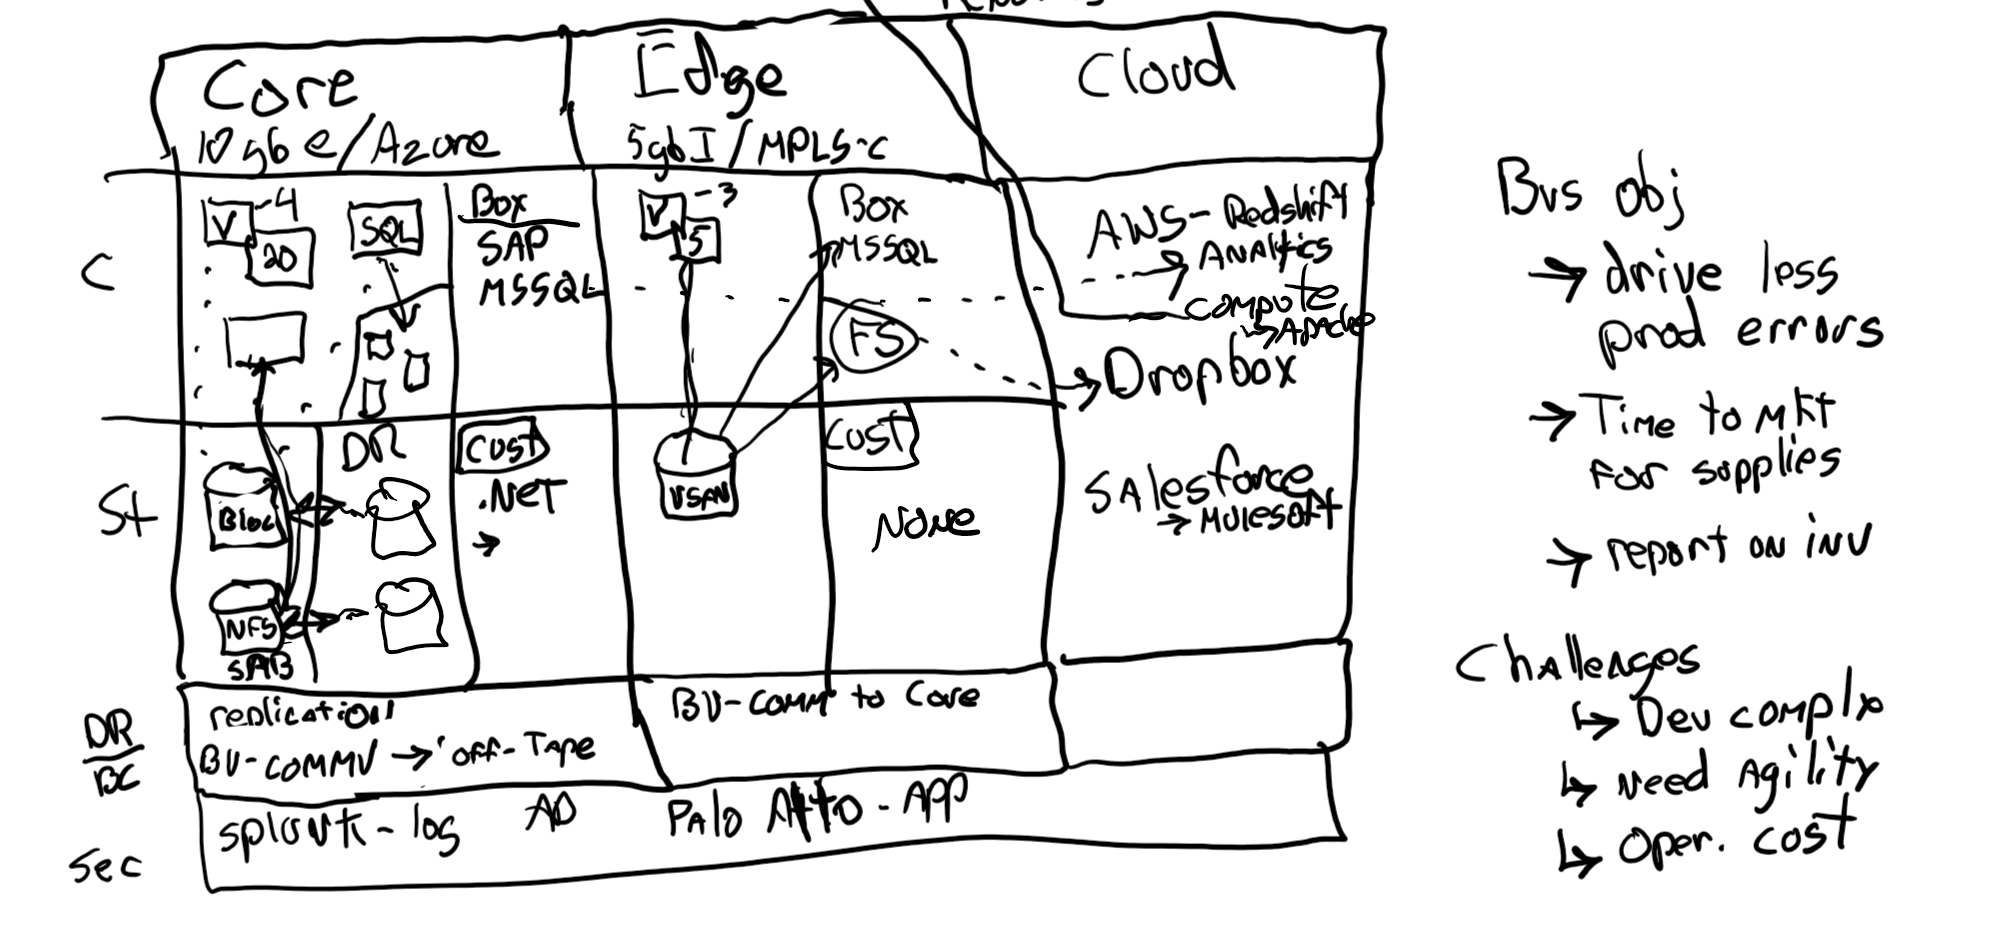 Core
Edge
Cloud
10gbe/Azure
5gbI/MPLS-C
C
V -4
20
SQL
Box
SAP
MSSQL
V -3
5
Box
MSSQL
FS
AWS-Redshift
→ Analytics
Compute
↳ Apache
→ Dropbox
St
Bloc
NFS
SAB
DR
Cust
.NET
→
VSAN
Cust
None
Salesforce
→ Mulesoft
DR
BC
replication
BU-COMMV → off-Tape
BU-COMM to Core
Sec
splunk-log
AD
Palo Alto-APP
Bus obj
→ drive less
prod errors
→ Time to Mkt
for supplies
→ report on inv
Challenges
↳ Dev complx
↳ Need Agility
↳ Oper. cost